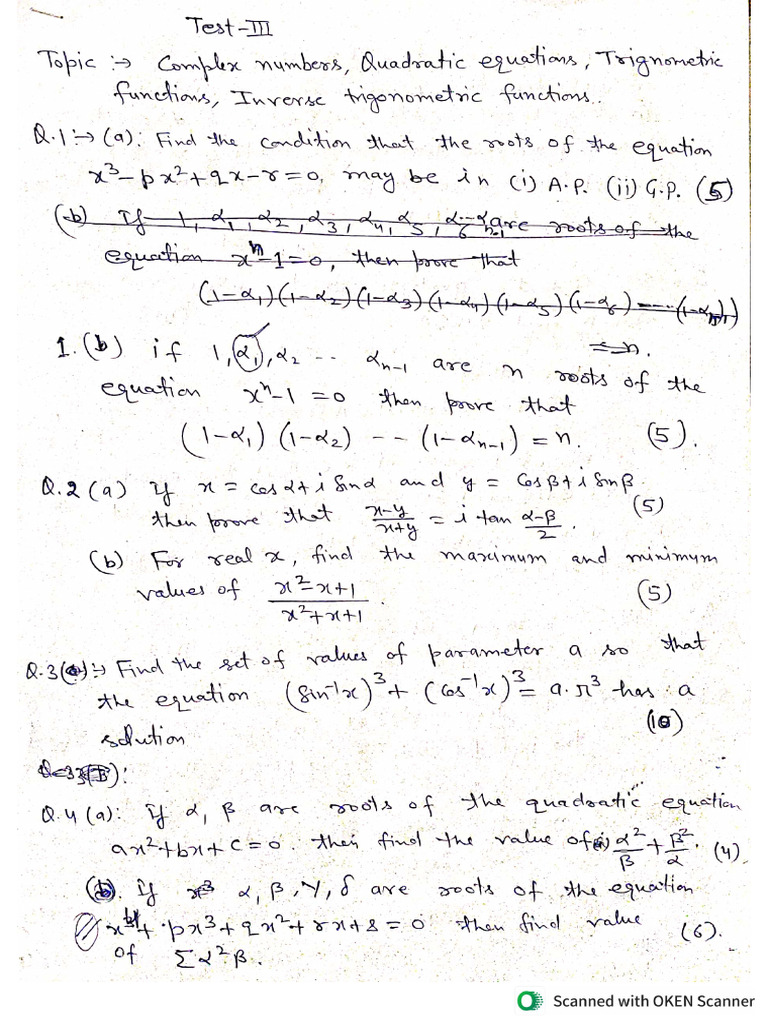 Test-III
Topic :→ Complex numbers, Quadratic equations, Trignometric
functions, Inverse trigonometric functions..
Q.1:→ (a): Find the condition that the roots of the equation
x³-px²+qx-r=0, may be in (i) A.P. (ii) G.P. (5)
(b) If 1, α₁, α₂, α₃, α₄, α₅, α₆...αₙ₋₁ are roots of the
equation xⁿ-1=0, then prove that
(1-α₁)(1-α₂)(1-α₃)(1-α₄)(1-α₅)(1-α₆) ---- (1-αₙ₋₁)
= n.
1.(b) if 1, α₁, α₂ .. αₙ₋₁ are n roots of the
equation xⁿ-1=0 then prove that
(1-α₁) (1-α₂) --- (1-αₙ₋₁) = n. (5).
Q.2 (a) If x = cos α + i Sin α and y = Cos β + i Sin β.
then prove that (x-y)/(x+y) = i tan (α-β)/2. (5)
(b) For real x, find the maximum and minimum
values of (x²-x+1)/(x²+x+1). (5)
Q.3 :→ Find the set of values of parameter a so that
the equation (Sin⁻¹x)³ + (Cos⁻¹x)³ = a.π³ has a
solution (10)
Q.4 (a): If α, β are roots of the quadratic equation
ax²+bx+c=0. then find the value of α²/β + β²/α. (4)
(b). If α, β, γ, δ are roots of the equation
x⁴+px³+qx²+rx+s=0 then find value
of Σα²β. (6).
Scanned with OKEN Scanner